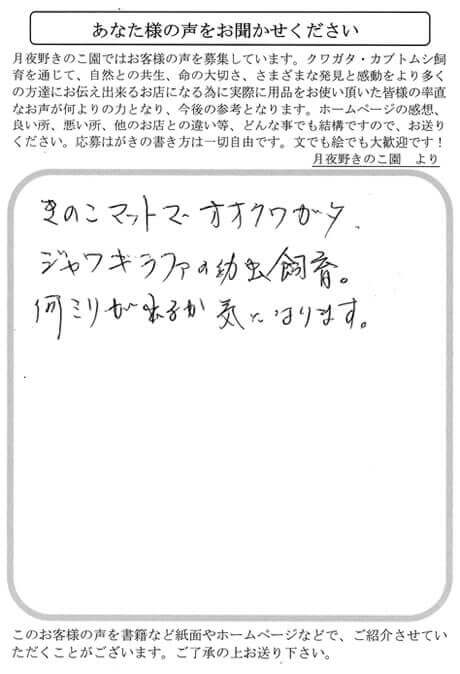 あなた様の声をお聞かせください
月夜野きのこ園ではお客様の声を募集しています。クワガタ・カブトムシ飼
育を通じて、自然との共生、命の大切さ、さまざまな発見と感動をより多く
の方達にお伝え出来るお店になる為に実際に用品をお使い頂いた皆様の率直
なお声が何よりの力となり、今後の参考となります。ホームページの感想、
良い所、悪い所、他のお店との違い等、どんな事でも結構ですので、お送り
ください。応募はがきの書き方は一切自由です。文でも絵でも大歓迎です！
月夜野きのこ園　より
きのこマットでオオクワガタ、
ジャワギラファの幼虫飼育。
何ミリが出るか気になります。
このお客様の声を書籍など紙面やホームページなどで、ご紹介させてい
ただくことがございます。ご了承の上お送り下さい。